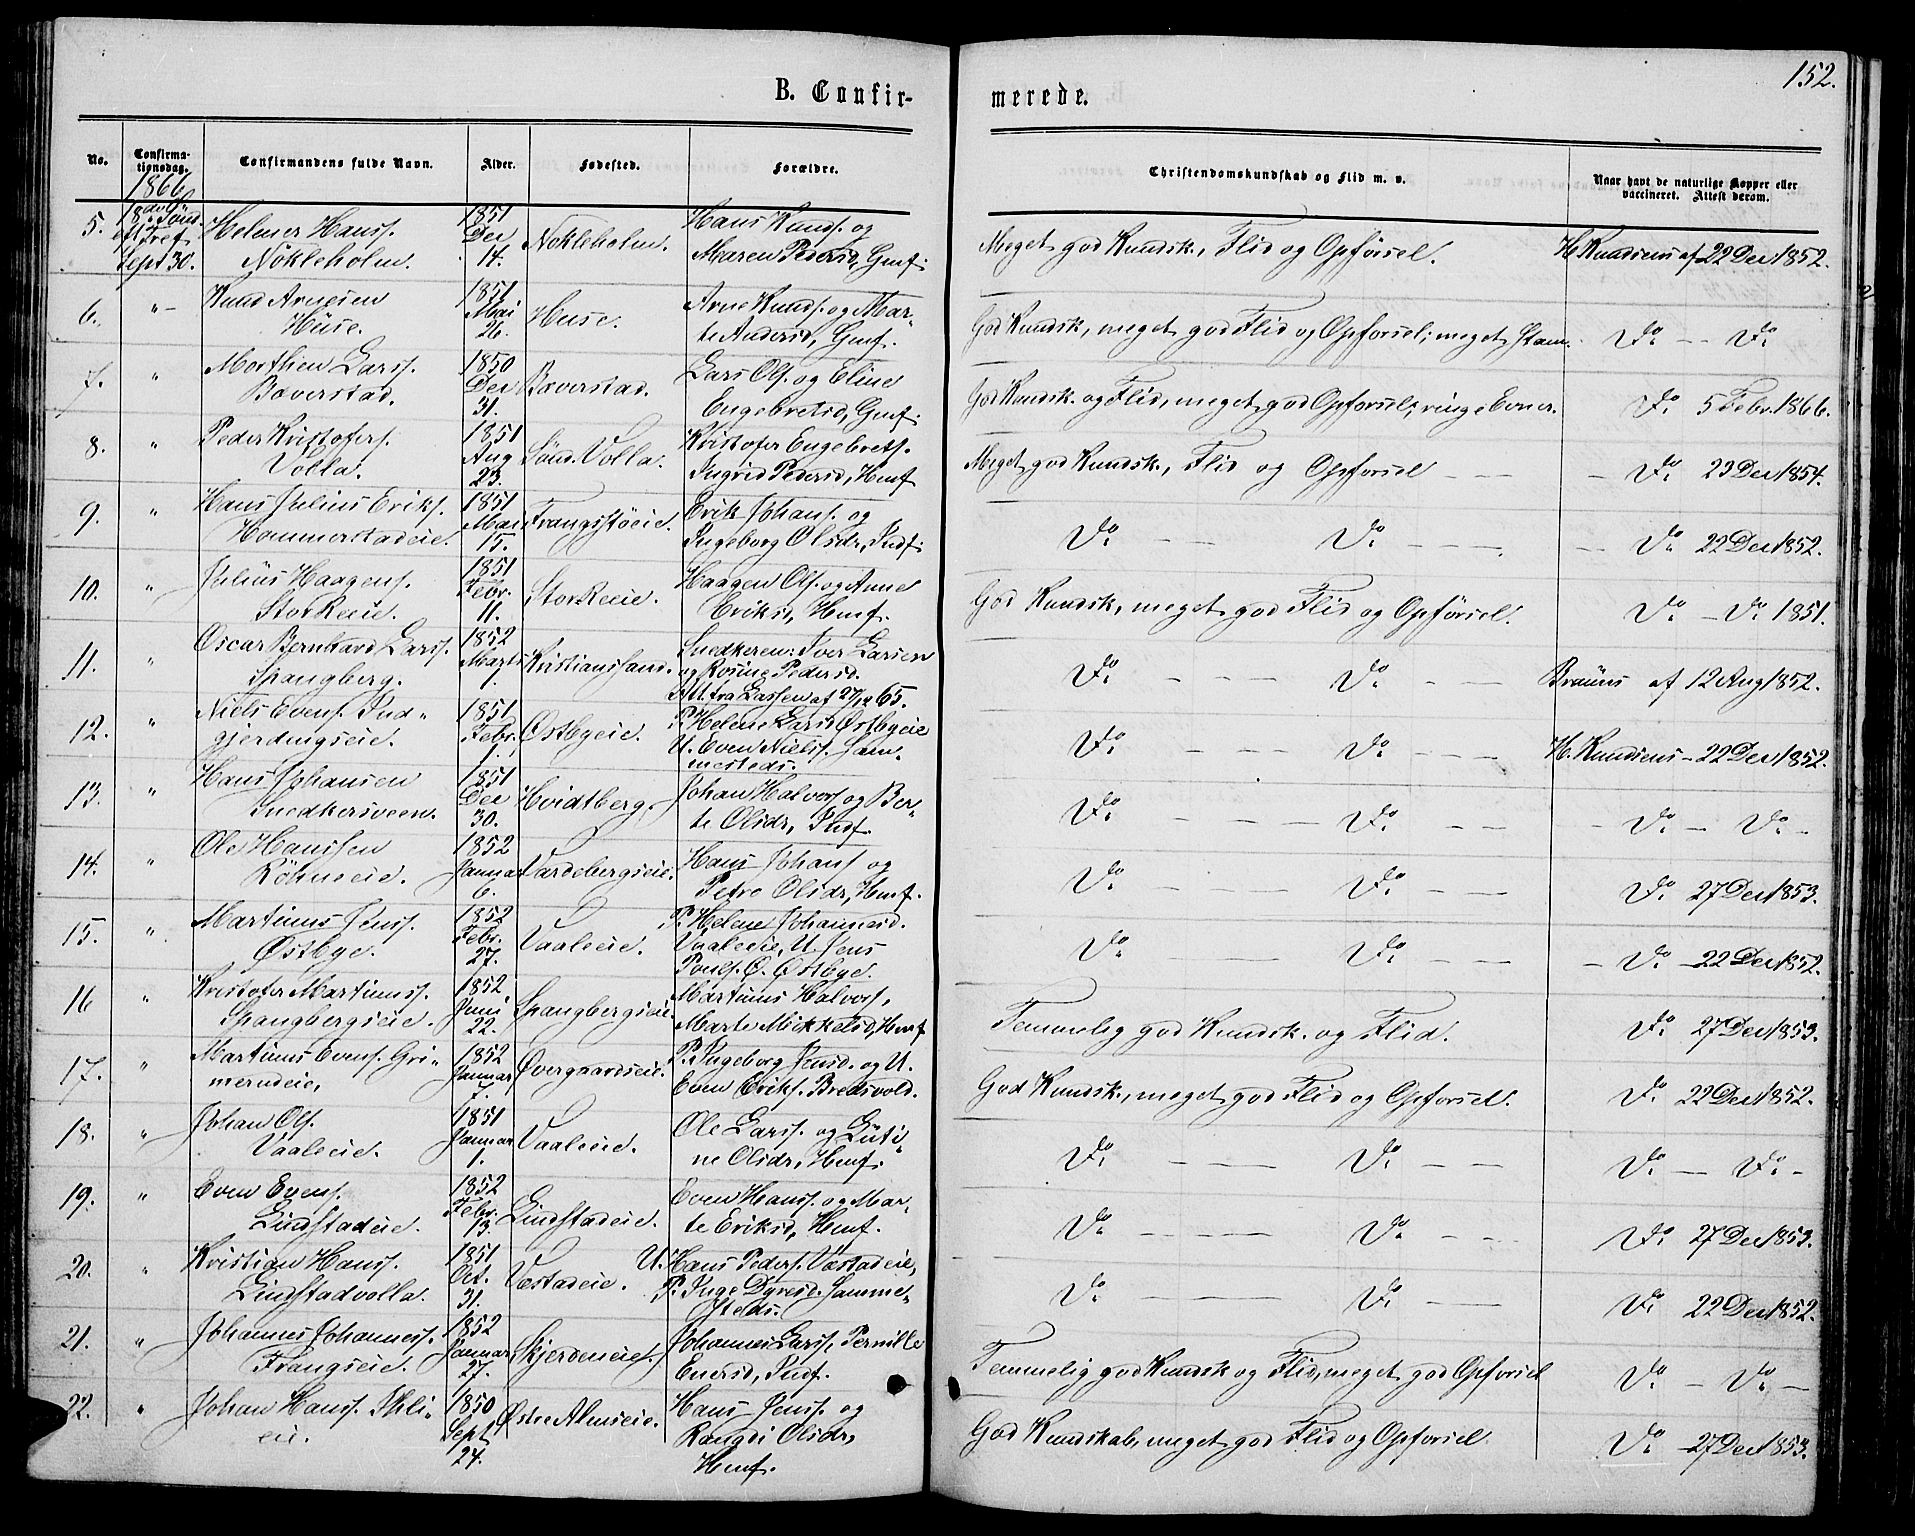 152.
B. Confir-
merede.
No.
Confirma-
tionsdag.
Confirmandens fulde Navn.
Alder.
Fødested.
Forældre.
Christendomskundskab og Flid m. v.
Naar havt de naturlige Kopper eller
vaccineret. Attest derom.
1866
5.
18de Sønd.
eft Tref
Sept 30.
Helmer Hanss.
Nökleholm.
1851
Dec
14.
Nokleholm.
Hans Knuds. og
Maren Pedersd, Gmf.
Meget god Kundsk., Flid og Opførsel.
H. Knudsens af 22 Dec 1852.
6.
"–
Knud Arnesen
Hüse.
1851
Mai
26.
Huse.
Arne Knuds. og Mar-
te Andersd, Gmf.
God Kundsk, meget god Flid og Opforsel; meget
Do – – Do
7.
"
Morthen Larss.
Boverstad.
1850
Dec
31.
Boverstad.
Lars Ols. og Eline
Engebretsd, Gmf.
God Kundsk. og Flid, meget god Opforsel, ringe Evner.
Do 5 Febr. 1866.
8.
"
Peder Kristofers.
Volla.
1851
Aug
23.
Sönd. Volla.
Kristofer Engebrets.
Ingrid Pedersd, Hmf
Meget god Kundsk., Flid og Opforsel – – –
– Do 23 Dec 1854.
9.
"
Hans Julius Eriks.
Hammerstadeie.
1851
Mai
15.
Frangsstøeie.
Erik Johans. og
Ingeborg Olsdr, Indf.
Do – – Do – – –
– Do 22 Dec 1852.
10.
"
Julius Haagens.
Storkeeie.
1851
Febr.
11.
Storkeeie.
Haagen Ols. og Anne
Eriksd, Hmf.
God Kundsk, meget god Flid og Opførsel.
Do – Do 1851.
11.
"
Oscar Bernhard Larss.
Spangberg.
1852
Marts
1.
Kristianssand.
Snedkeren: Iver Larsen
og Rosine Pedersd.
Att. fra Lassen af 27/12 65.
Do – – – Do – –
Braüns af 12 Aug 1852.
12.
"
Niels Evens. Ind-
gjerdingseie.
1851
Febr.
1.
Østbyeie.
P. Helene Larsd Østbyeie
U. Even Niels. sam-
mesteds.
Do – – – Do – –
H. Knudsens – 22 Dec 1852.
13.
"
Hans Johansen
Snedkersveen.
1851
Dec
30.
Hvidtberg.
Johan Halvors og Ber-
te Olsdr, Indf.
Do – – – Do – –
– Do – Do –
14.
"
Ole Hanssen
Röhneeie.
1852
Januar
6.
Vardebergseie.
Hans Johans og
Petro Olsdr, Hmf.
Do – – Do – –
Do 27 Dec 1853.
15.
"
Martinus Jenss.
Østbye.
1852
Febr.
27.
Vaaleeie.
P. Helene Johannesd.
Vaaleeie, U. Jens
Pouls. Ø. Østbye.
Do – – Do – –
– Do – 22 Dec 1852.
16
"
Kristofer Martinuss.
Spangbergseie.
1852
Juni
22.
Spangbergseie.
Martinus Halvors,
Marte Mikkelsd, Hmf
Temmelig god Kundsk. og Flid.
Do 27 Dec 1853.
17.
"
Martinus Evens. Gri-
merudeie,
1852
Januar
7.
Øvergaardseie.
P. Ingeborg Jensd. og U.
Even Eriks. Bredsvold.
God Kundsk., meget god Flid og Opforsel.
Do 22 Dec 1852.
18.
"
Johan Ols.
Vaaleeie.
1851
Januar
1.
Vaaleeie.
Ole Larss. og Güti-
ne Olsdr, Hmf.
Do – – – Do – –
Do – Do –
19.
"
Even Evens.
Lindstadeie.
1852
Febr.
13.
Lindstadeie.
Even Hanss. og Mar-
te Eriksd, Hmf.
Do – – – Do – –
Do 27 Dec 1853.
20.
"
Kristian Hanss.
Lindstadvolla.
1851
Oct.
31.
Væstadeie.
U. Hans Peders. Væstadeie,
P. Inge Dyresd. samme-
steds.
Do – – – Do – –
Do 22 Dec 1852.
21.
"
Johannes Johanness.
Frangseie.
1852
Januar
27.
Skjerdeneie.
Johannes Larss, Pernille
Enersd, Indf.
Temmelig god Kundsk og Flid, meget god Opforsel
Do – Do –
22.
"
Johan Hanss. Thli-
eie.
1850
Sept
24.
Østre Almseie.
Hans Jenss og
Rangdi Olsdr,
Hmf.
God Kundskab, meget god Flid og Opforsel.
Do – 27 Dec 1853.